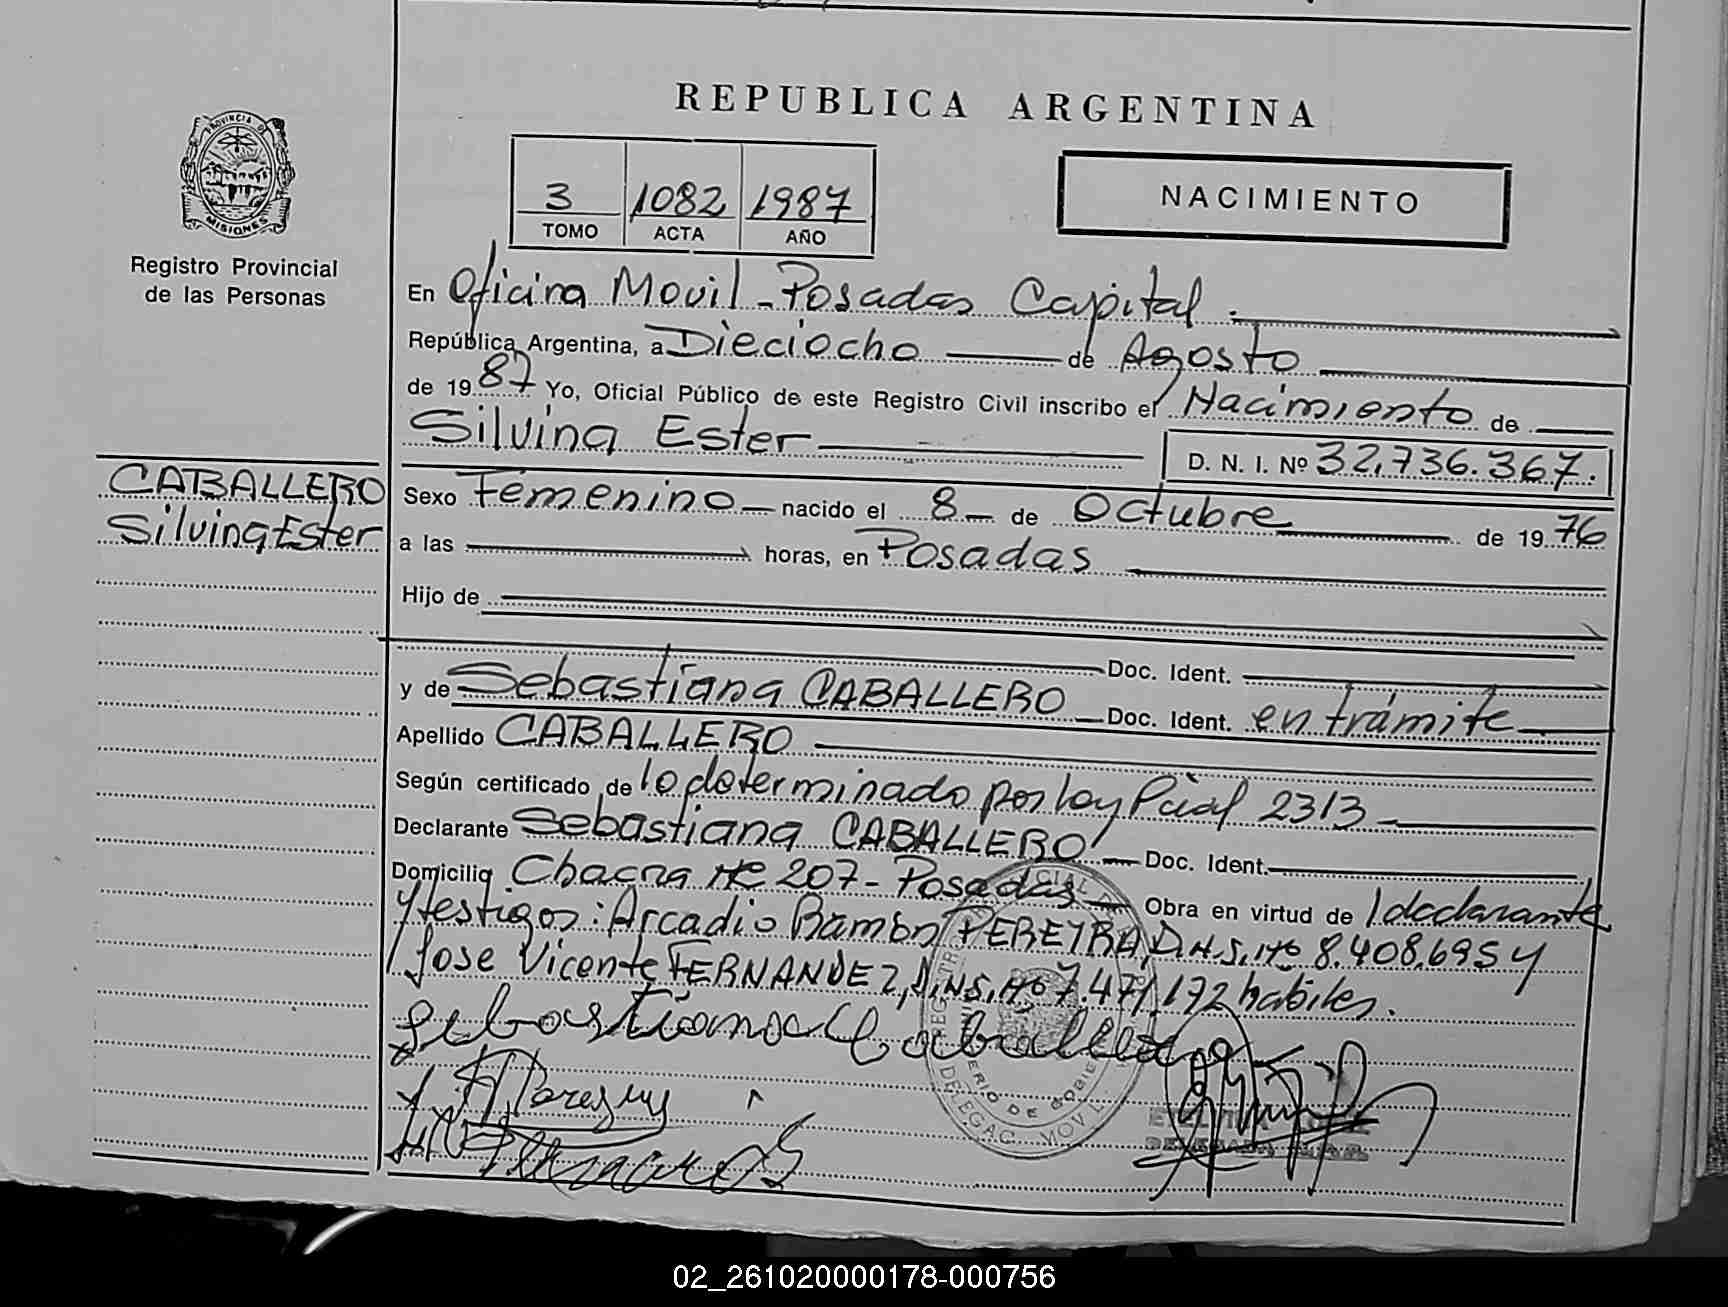 REPUBLICA ARGENTINA
PROVINCIA DE
MISIONES
Registro Provincial
de las Personas
3 1082 1987
TOMO ACTA AÑO
NACIMIENTO
En Oficina Movil - Posadas Capital.
República Argentina, a Dieciocho de Agosto
de 1987 Yo, Oficial Público de este Registro Civil inscribo el Nacimiento de
Silvina Ester D. N. I. Nº 32.736.367.
CABALLERO
Silvina Ester
Sexo Femenino nacido el 8 de Octubre de 1976
a las horas, en Posadas
Hijo de
Doc. Ident.
y de Sebastiana CABALLERO Doc. Ident. en trámite
Apellido CABALLERO
Según certificado de lo determinado por ley Pcial 2313
Declarante Sebastiana CABALLERO Doc. Ident.
Domicilio Chacra Nº 207 - Posadas Obra en virtud de / declarante
y testigos: Arcadio Ramón PEREYRA, D.N.I. Nº 8.408.695 y
Jose Vicente FERNANDEZ, D.N.I. Nº 7.471.172 habiles.
Sebastiana Caballero
DELEGAC. MOVIL
02_261020000178-000756